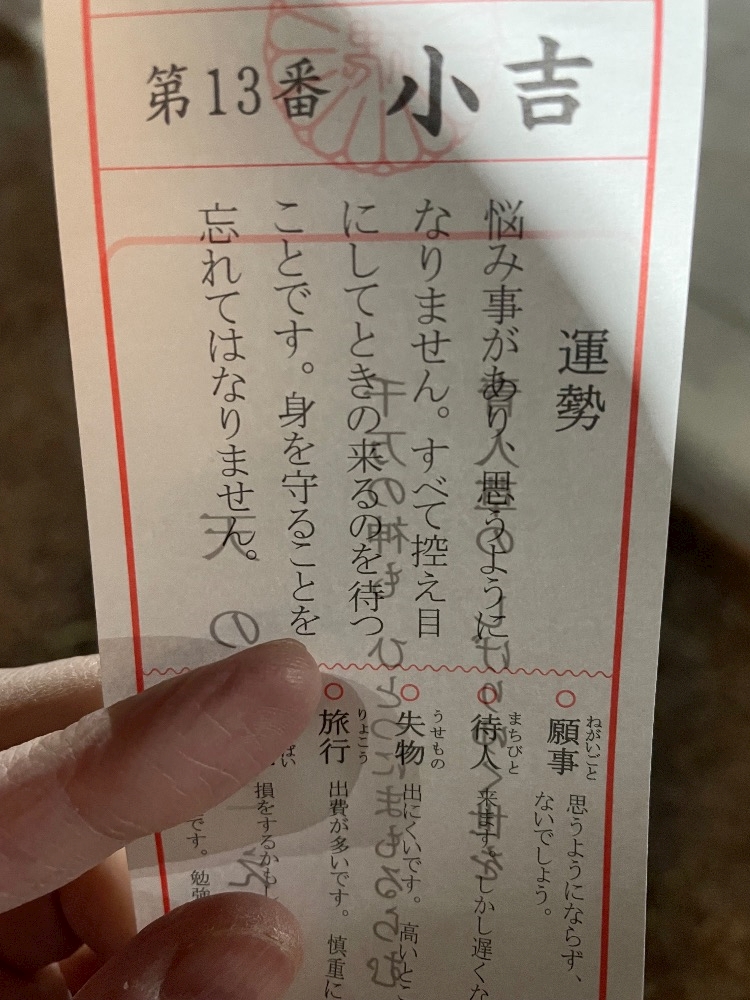 第13番 小吉
運勢
悩み事があり、思うように
なりません。すべて控え目
にしてときの来るのを待つ
ことです。身を守ることを
忘れてはなりません。
願事 ねがいごと
思うようにならず、
ないでしょう。
待人 まちびと
来ます。しかし遅くな
失物 うせもの
出にくいです。高いとこ
旅行 りょこう
出費が多いです。慎重に
ばい
損をするかも
です。勉強